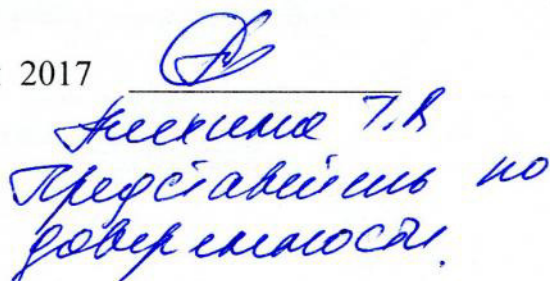 2017
Алехина Т.В
Представитель по
доверенности.